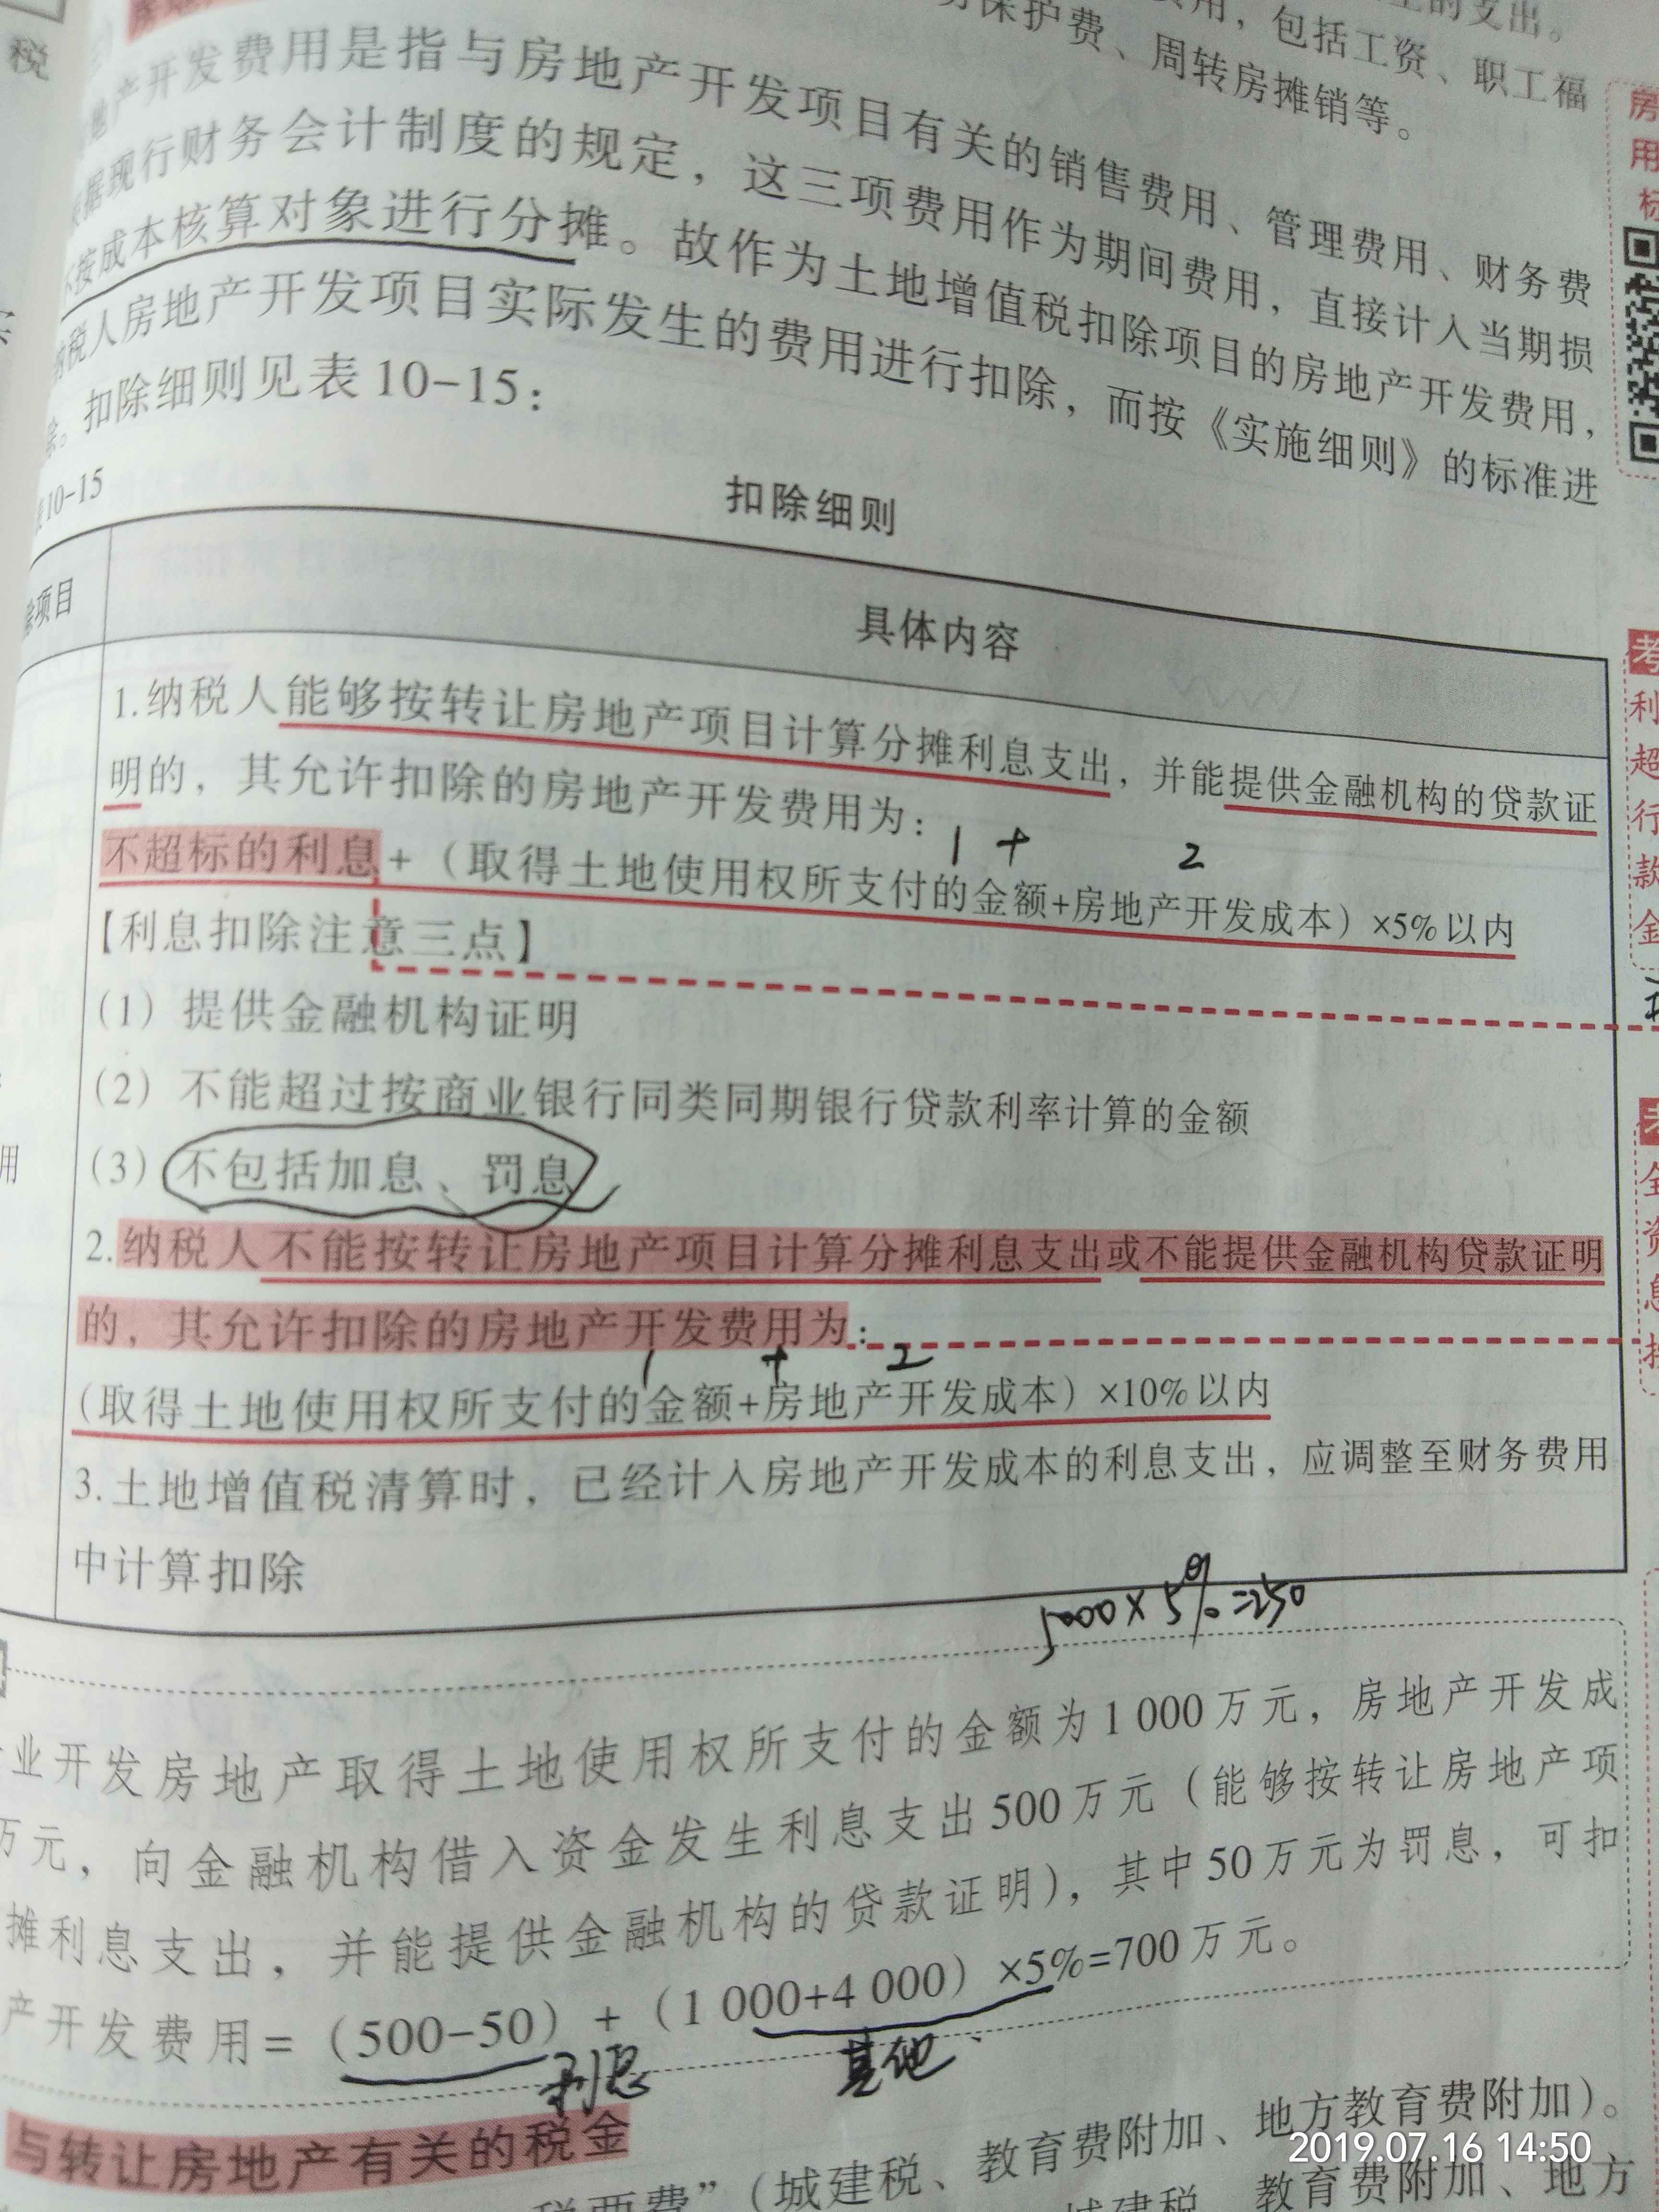 税
上的支出。
费用，包括工资、职工福
保护费、周转房摊销等。
地产开发费用是指与房地产开发项目有关的销售费用、管理费用、财务费
据现行财务会计制度的规定，这三项费用作为期间费用，直接计入当期损
不按成本核算对象进行分摊。故作为土地增值税扣除项目的房地产开发费用，
纳税人房地产开发项目实际发生的费用进行扣除，而按《实施细则》的标准进
除。扣除细则见表10-15：
表10-15
扣除细则
除项目
具体内容
1.纳税人能够按转让房地产项目计算分摊利息支出，并能提供金融机构的贷款证
明的，其允许扣除的房地产开发费用为：
1 + 2
不超标的利息+（取得土地使用权所支付的金额+房地产开发成本）×5%以内
【利息扣除注意三点】
（1）提供金融机构证明
（2）不能超过按商业银行同类同期银行贷款利率计算的金额
（3）不包括加息、罚息
2.纳税人不能按转让房地产项目计算分摊利息支出或不能提供金融机构贷款证明
的，其允许扣除的房地产开发费用为：
1 + 2
（取得土地使用权所支付的金额+房地产开发成本）×10%以内
3.土地增值税清算时，已经计入房地产开发成本的利息支出，应调整至财务费用
中计算扣除
5000×5%=250
业开发房地产取得土地使用权所支付的金额为1 000万元，房地产开发成
万元，向金融机构借入资金发生利息支出500万元（能够按转让房地产项
摊利息支出，并能提供金融机构的贷款证明），其中50万元为罚息，可扣
产开发费用=（500-50）+（1 000+4 000）×5%=700万元。
利息
其他
与转让房地产有关的税金
税两费”（城建税、教育费附加、地方教育费附加）。
城建税、教育费附加、地方
房
用
标
考
利
超
行
款
金
考
全
资
息
按
2019.07.16 14:50